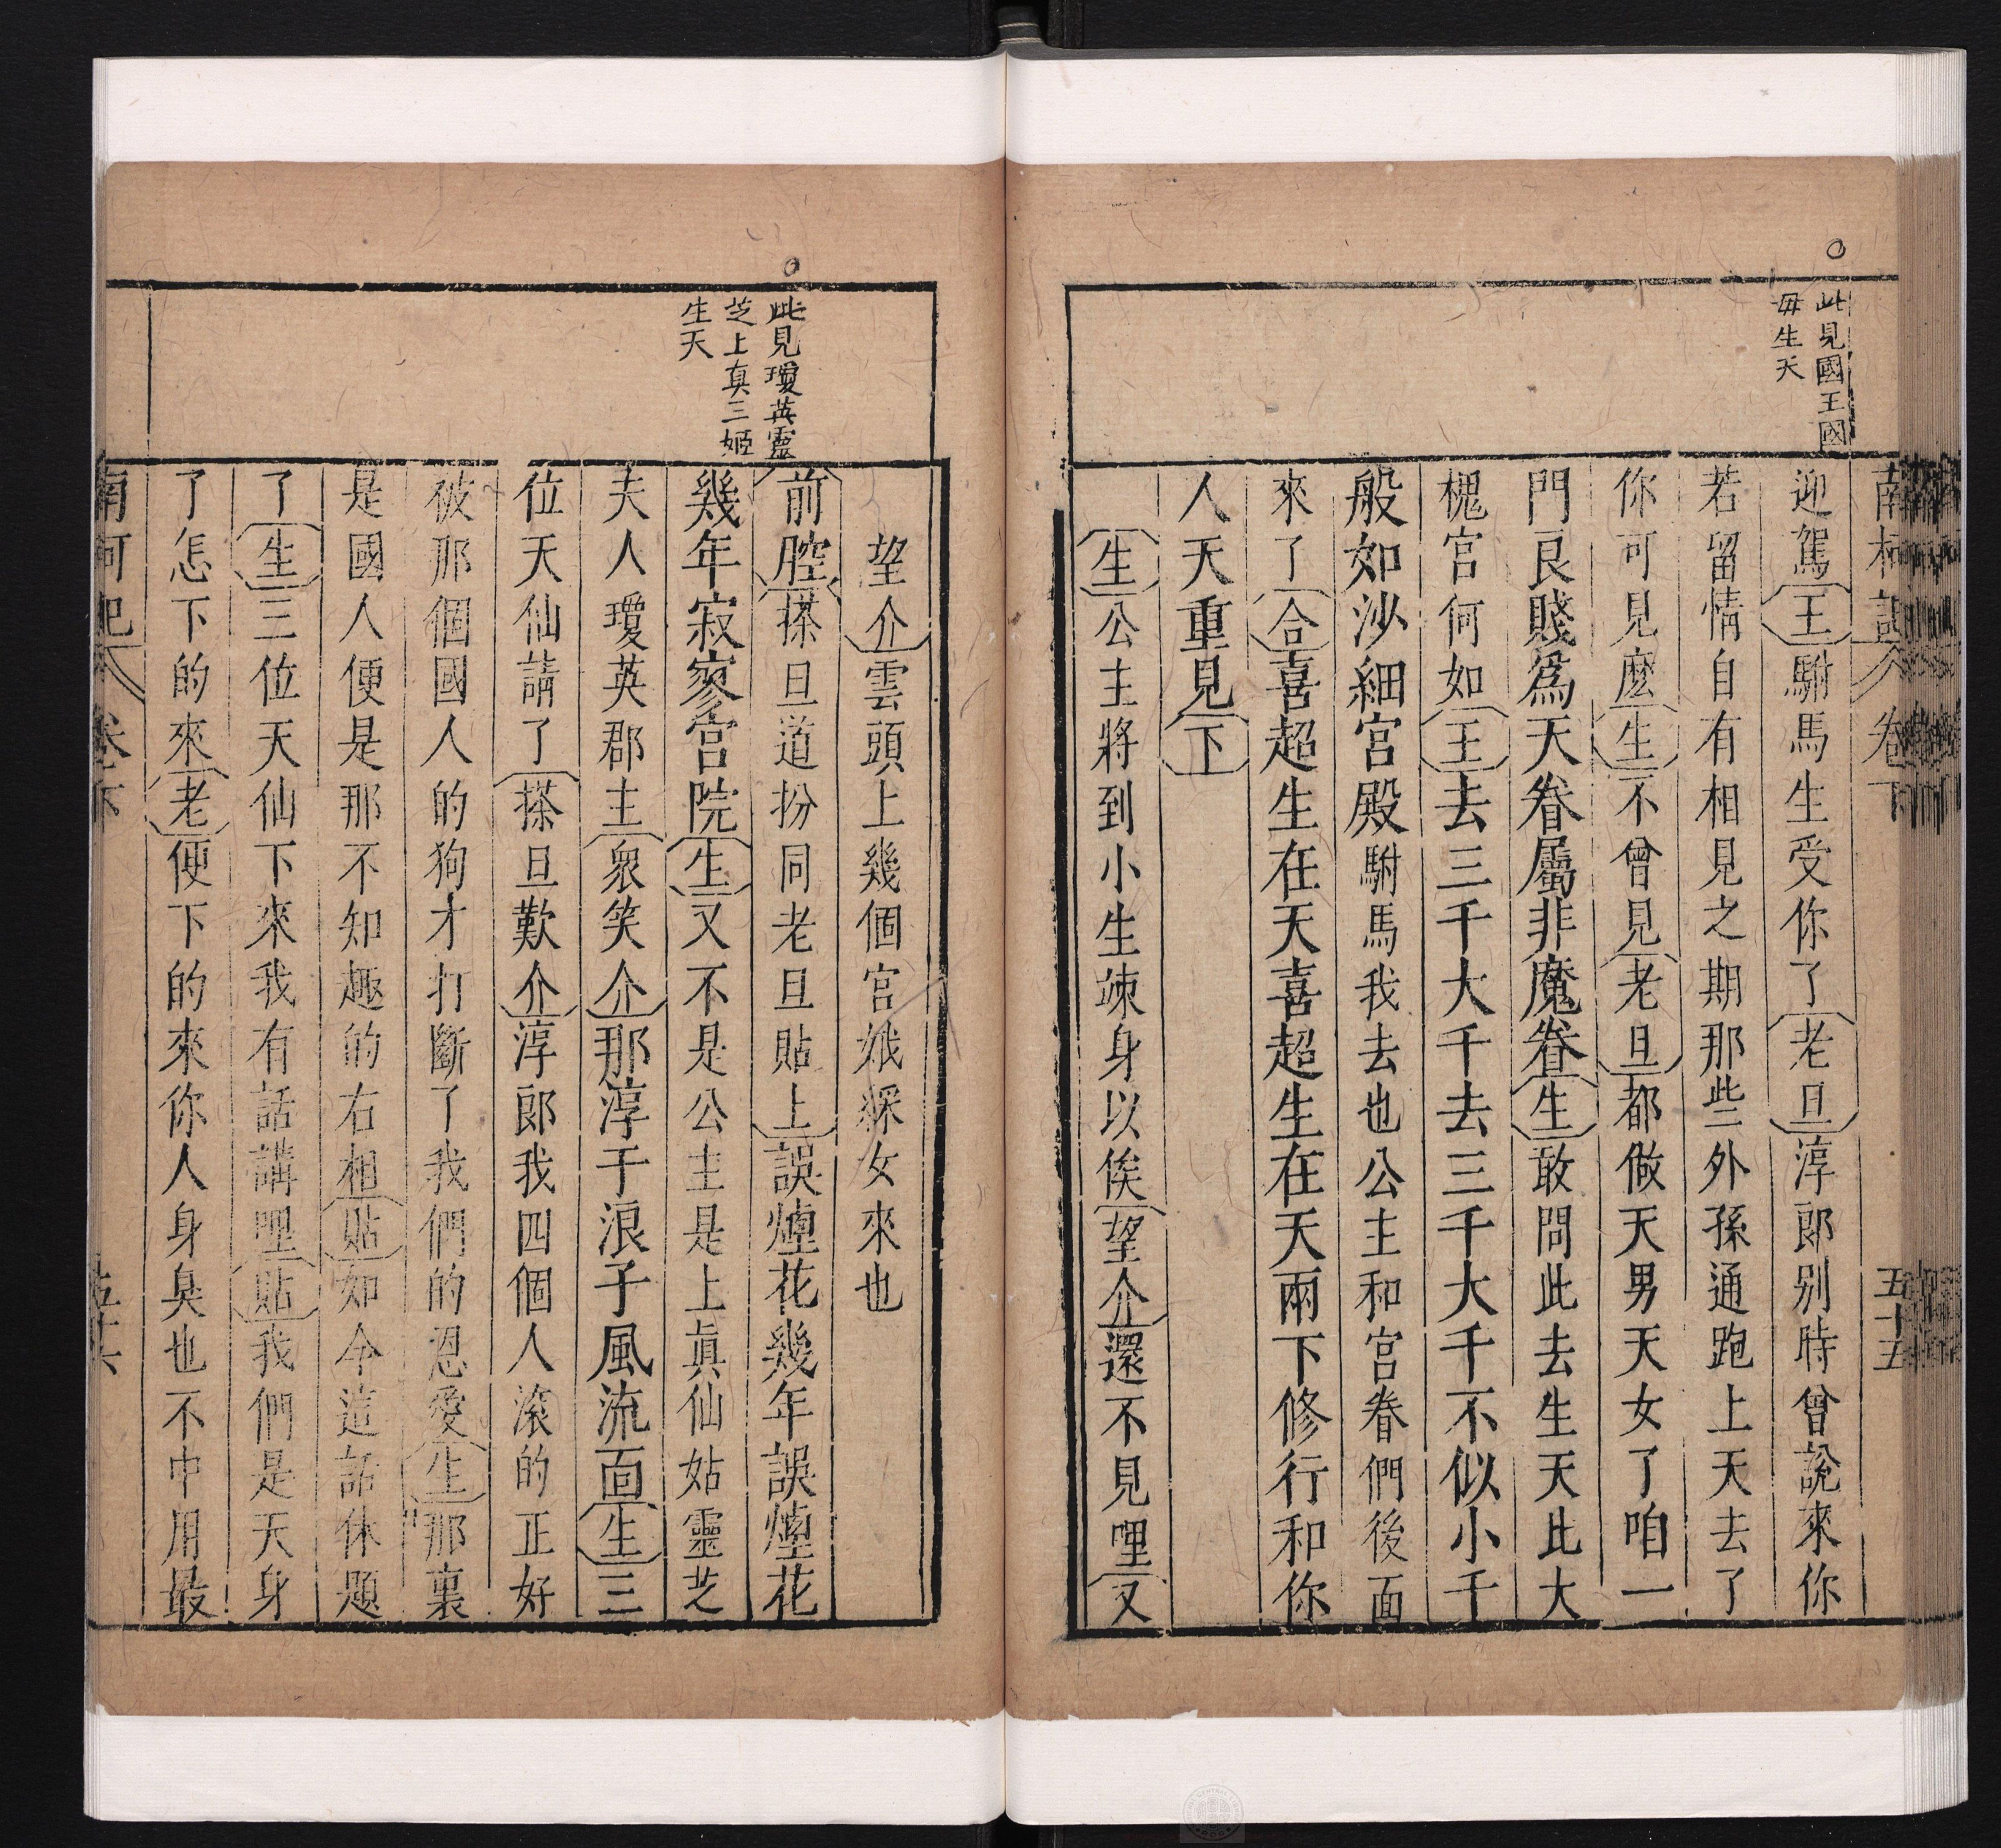 南柯記 卷下 五十五
此見國王國
母生天
迎駕王駙馬生受你了老旦淳郎别時曾說來你
若留情自有相見之期那些外孫通跑上天去了
你可見麽生不曾見老旦都做天男天女了咱一
門良賤爲天眷屬非魔眷生敢問此去生天此大
槐宫何如王去三千大千去三千大千不似小千
般如沙細宫殿駙馬我去也公主和宫眷們後面
來了合喜超生在天喜超生在天兩下修行和你
人天重見下
生公主將到小生竦身以俟望介還不見哩又
望介雲頭上幾個宫娥綵女來也
此見瓊英靈
芝上真三姬
生天
前腔搽旦道扮同老旦貼上誤煙花幾年誤煙花
幾年寂寥宫院生又不是公主是上眞仙姑靈芝
夫人瓊英郡主衆笑介那淳于浪子風流面生三
位天仙請了搽旦歎介淳郎我四個人滾的正好
被那個國人的狗才打斷了我們的恩愛生那裏
是國人便是那不知趣的右相貼如今這話休題
了生三位天仙下來我有話講哩貼我們是天身
了怎下的來老便下的來你人身臭也不中用最
南柯記 卷下 五十六